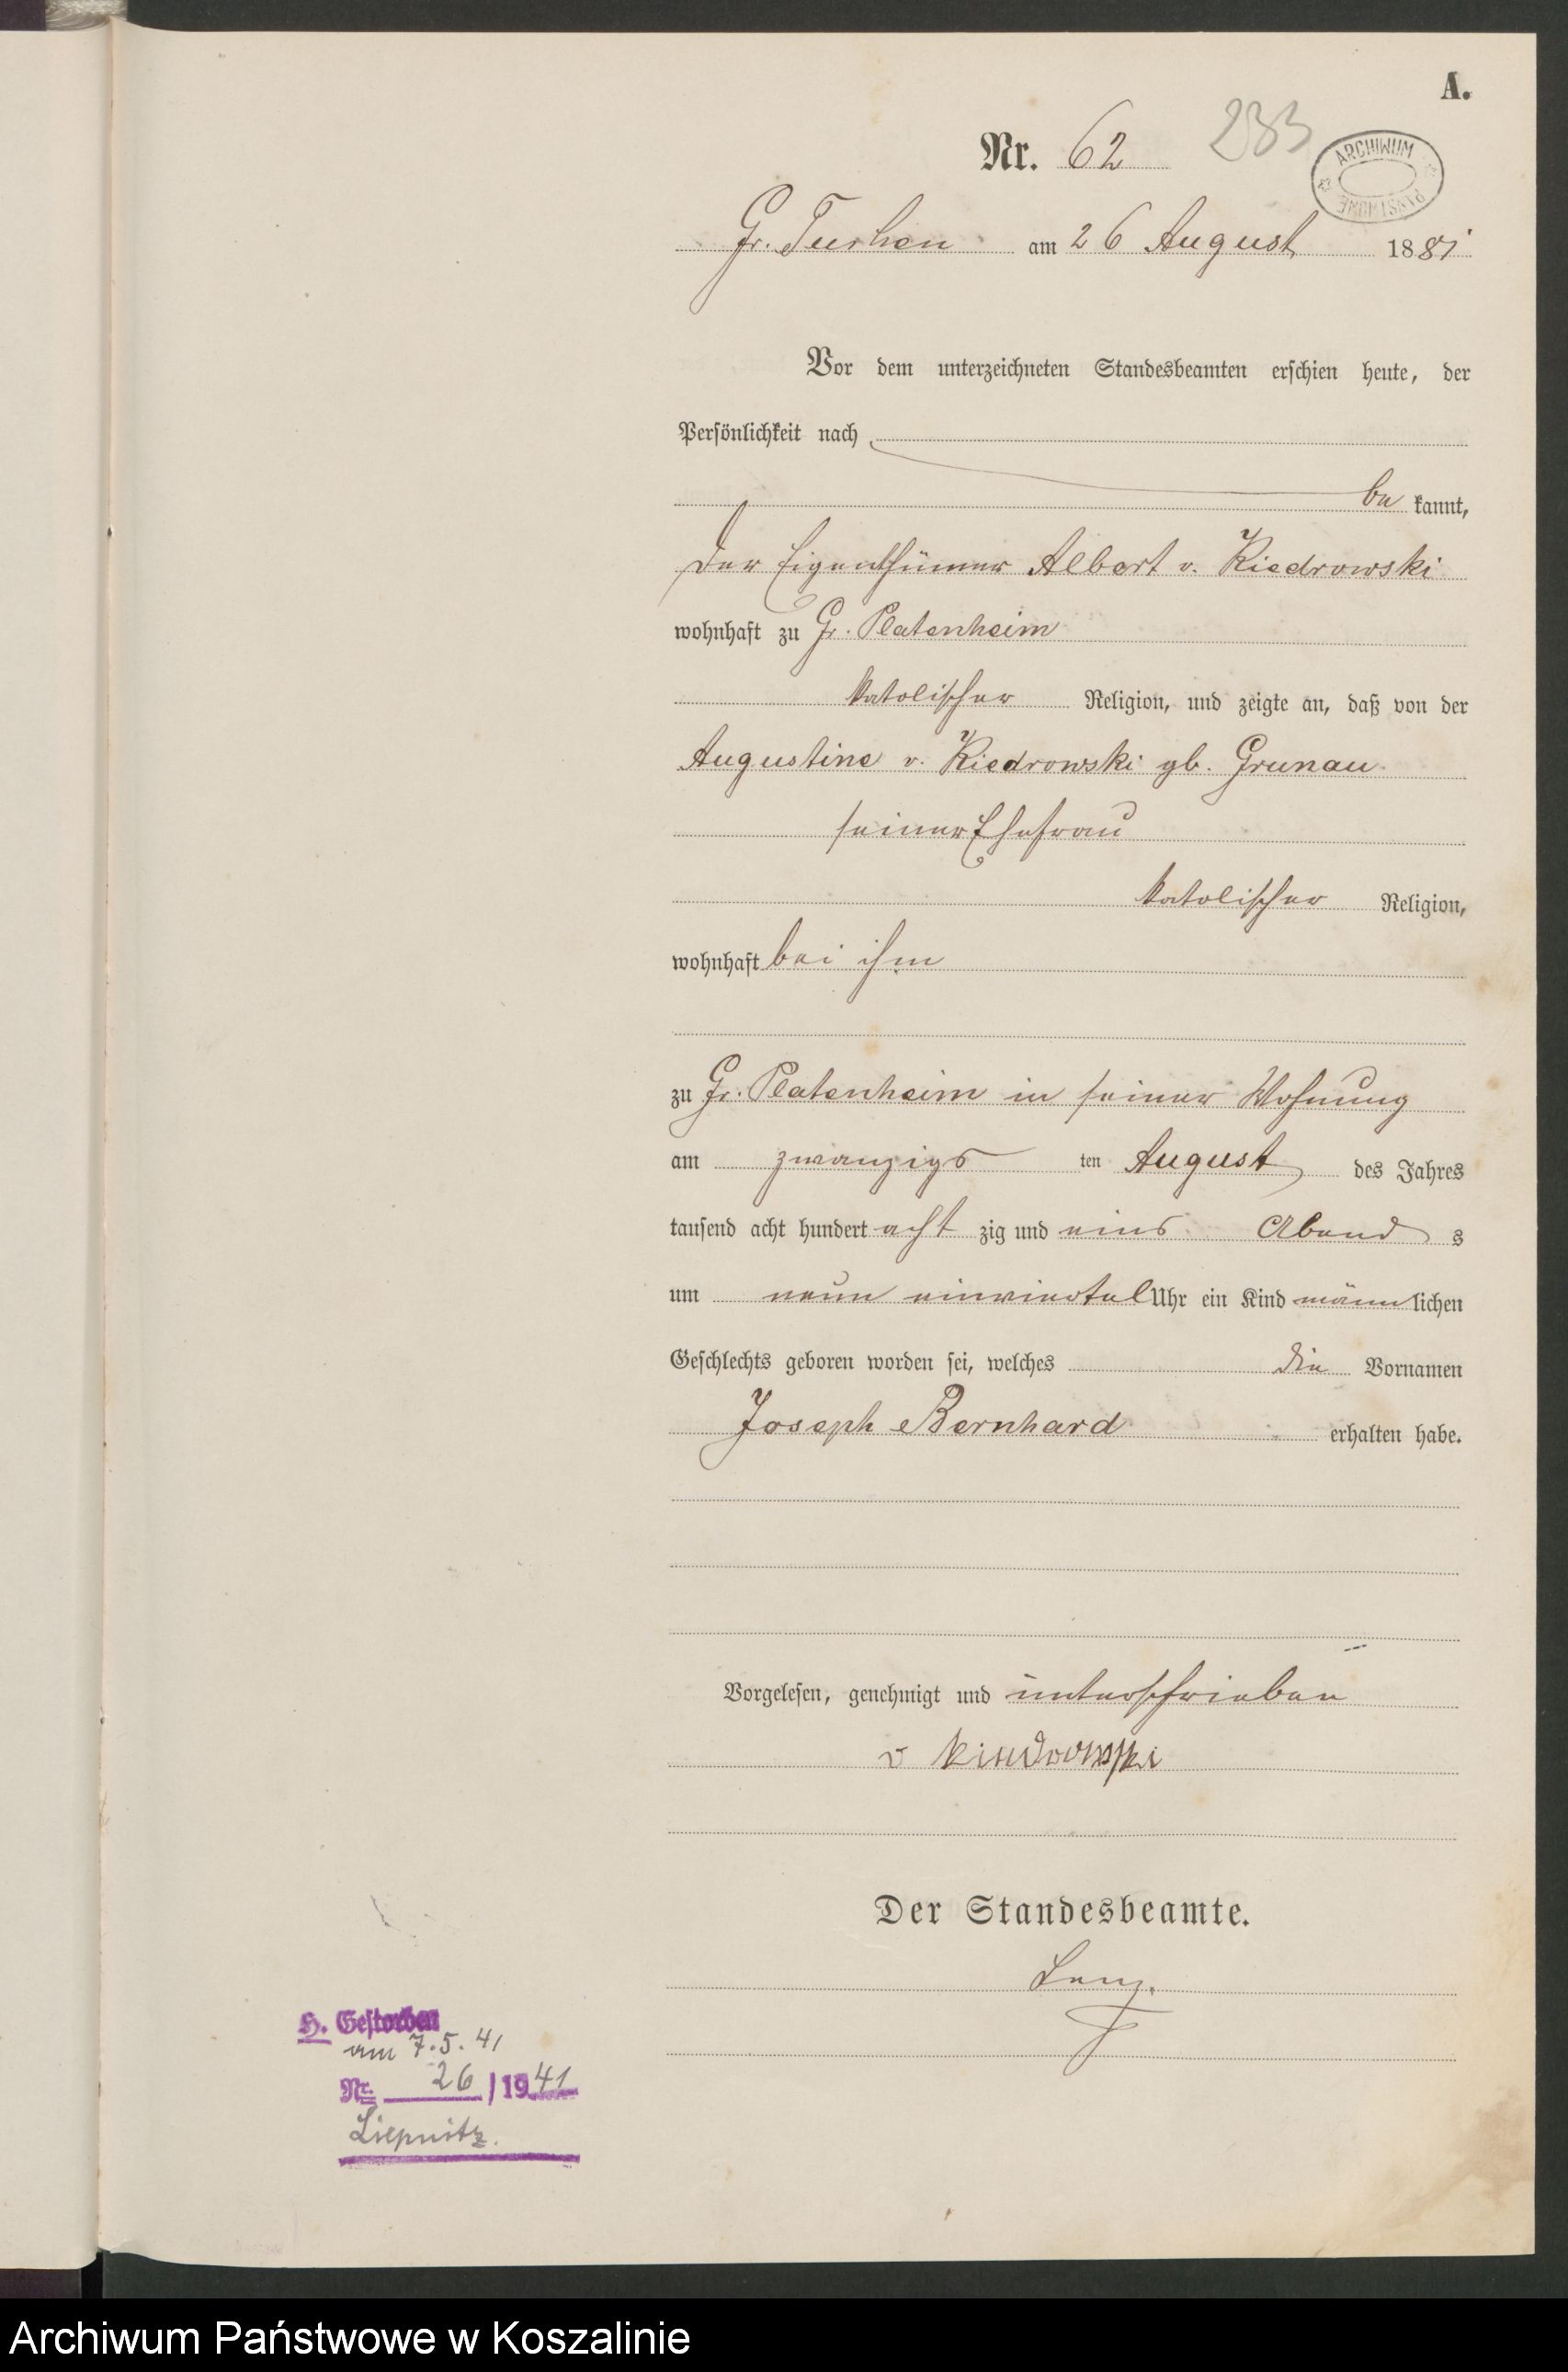 A.
Nr. 62 233
ARCHIWUM PAŃSTWOWE
Gr. Tuchen am 26 August 1881
Vor dem unterzeichneten Standesbeamten erschien heute, der
Persönlichkeit nach
be kannt,
der Eigenthümer Albert v. Kiedrowski
wohnhaft zu Gr. Platenheim
katolischer Religion, und zeigte an, daß von der
Augustine v. Kiedrowski gb. Grunau
seiner Ehefrau
katolischer Religion,
wohnhaft bei ihm
zu Gr. Platenheim in seiner Wohnung
am zwanzigs ten August des Jahres
tausend acht hundert acht zig und eins Abend s
um neun einviertel Uhr ein Kind männ lichen
Geschlechts geboren worden sei, welches die Vornamen
Joseph Bernhard erhalten habe.
Vorgelesen, genehmigt und unterschrieben
v Kiedrowski
Der Standesbeamte.
Lenz.
H. Gestorben
am 7.5.41
Nr. 26/1941
Liepnitz.
Archiwum Państwowe w Koszalinie